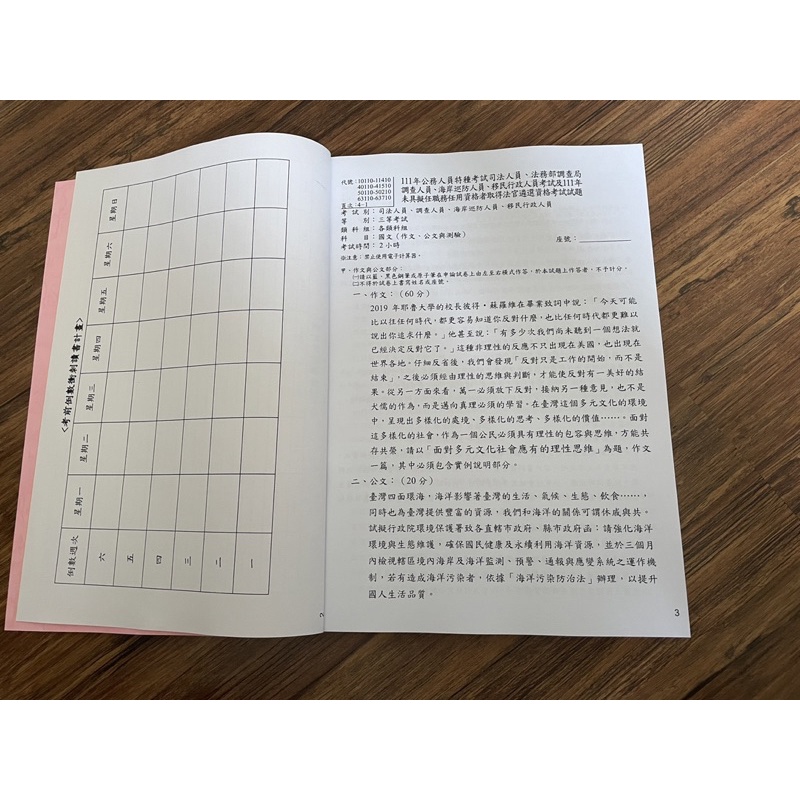 <考前倒數衝刺讀書計畫>
倒數週次 星期一 星期二 星期三 星期四 星期五 星期六 星期日
六
五
四
三
二
一
2
代號：10110-11410
40110-41510
50110-50210
63110-63710
頁次：4-1
111年公務人員特種考試司法人員、法務部調查局
調查人員、海岸巡防人員、移民行政人員考試及111年
未具擬任職務任用資格者取得法官遴選資格考試試題
考試別：司法人員、調查人員、海岸巡防人員、移民行政人員
等別：三等考試
類科組：各類科組
科目：國文（作文、公文與測驗）
考試時間：2小時
座號：
※注意：禁止使用電子計算器。
甲、作文與公文部分：
㈠請以藍、黑色鋼筆或原子筆在申論試卷上由左至右橫式作答，於本試題上作答者，不予計分。
㈡不得於試卷上書寫姓名或座號。
一、作文：（60分）
2019 年耶魯大學的校長彼得‧蘇羅維在畢業致詞中說：「今天可能
比以往任何時代，都更容易知道你反對什麼，也比任何時代都更難以
說出你追求什麼。」他甚至說：「有多少次我們尚未聽到一個想法就
已經決定反對它了。」這種非理性的反應不只出現在美國，也出現在
世界各地。仔細反省後，我們會發現「反對只是工作的開始，而不是
結束」，之後必須經由理性的思維與判斷，才能使反對有一美好的結
果。從另一方面來看，萬一必須放下反對，接納另一種意見，也不是
犬儒的作為，而是邁向真理必須的學習。在臺灣這個多元文化的環境
中，呈現出多樣化的處境、多樣化的思考、多樣化的價值……。面對
這多樣化的社會，作為一個公民必須具有理性的包容與思維，方能共
存共榮，請以「面對多元文化社會應有的理性思維」為題，作文
一篇，其中必須包含實例說明部分。
二、公文：（20分）
臺灣四面環海，海洋影響著臺灣的生活、氣候、生態、飲食……，
同時也為臺灣提供豐富的資源，我們和海洋的關係可謂休戚與共。
試擬行政院環境保護署致各直轄市政府、縣市政府函：請強化海洋
環境與生態維護，確保國民健康及永續利用海洋資源，並於三個月
內檢視轄區境內海岸及海洋監測、預警、通報與應變系統之運作機
制，若有造成海洋污染者，依據「海洋污染防治法」辦理，以提升
國人生活品質。
3